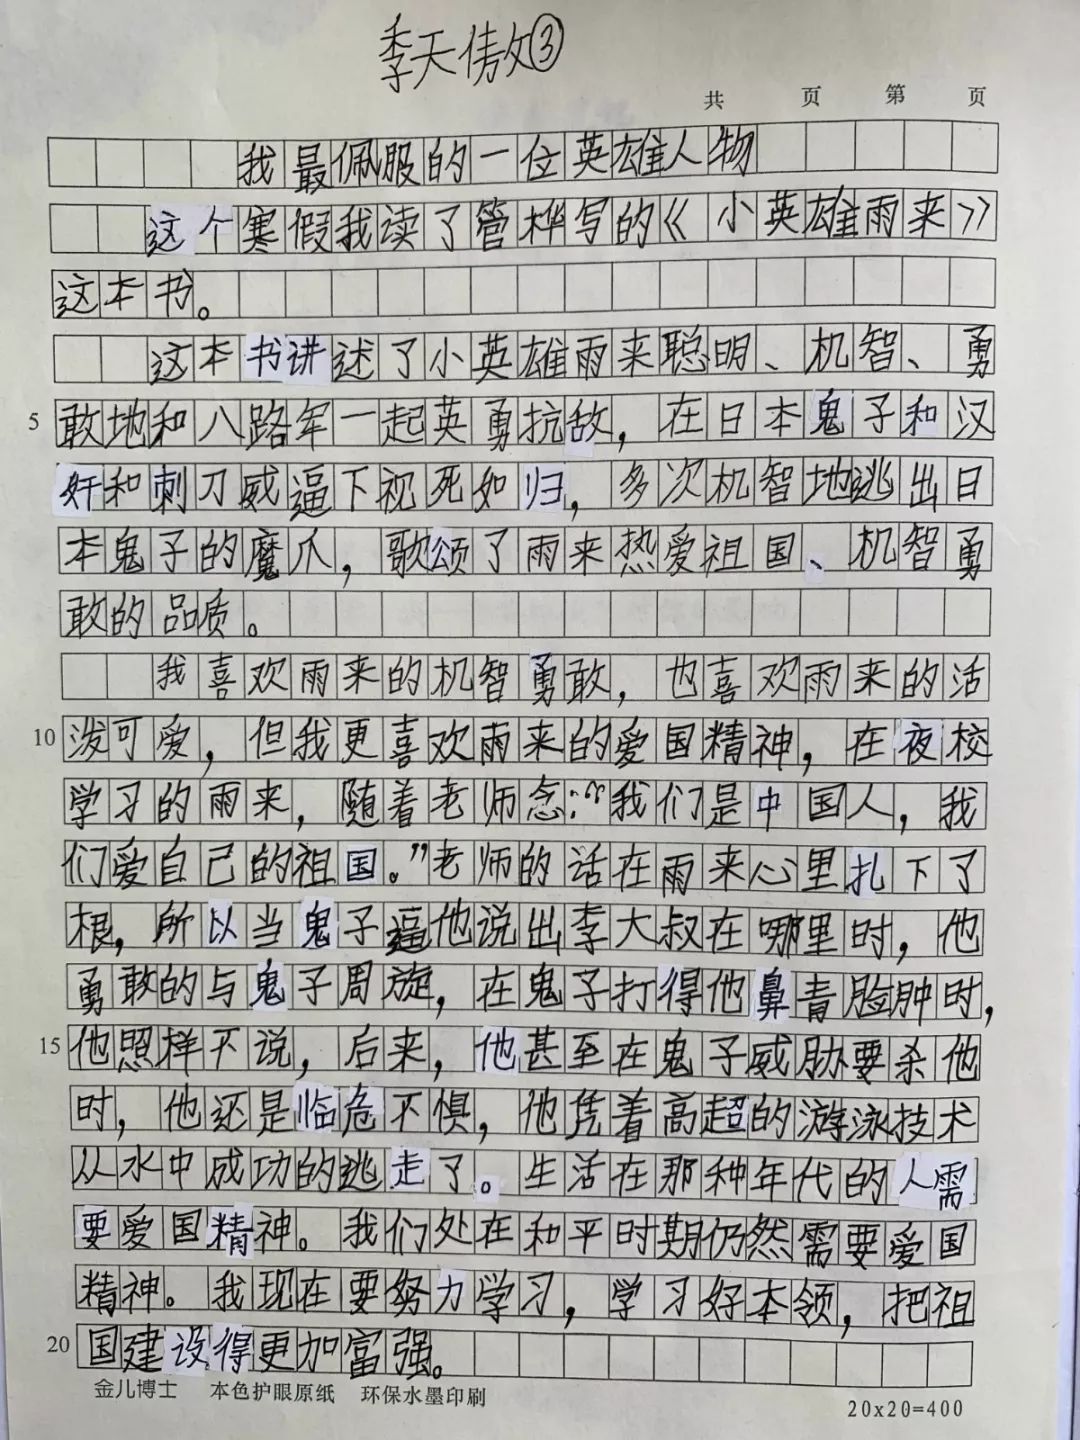 季天傲③
共 页 第 页
我最佩服的一位英雄人物
这个寒假我读了管桦写的《小英雄雨来》
这本书。
这本书讲述了小英雄雨来聪明、机智、勇
5 敢地和八路军一起英勇抗敌，在日本鬼子和汉
奸和刺刀威逼下视死如归，多次机智地逃出日
本鬼子的魔爪，歌颂了雨来热爱祖国、机智勇
敢的品质。
我喜欢雨来的机智勇敢，也喜欢雨来的活
10 泼可爱，但我更喜欢雨来的爱国精神，在夜校
学习的雨来，随着老师念：“我们是中国人，我
们爱自己的祖国。”老师的话在雨来心里扎下了
根，所以当鬼子逼他说出李大叔在哪里时，他
勇敢的与鬼子周旋，在鬼子打得他鼻青脸肿时，
15 他照样不说，后来，他甚至在鬼子威胁要杀他
时，他还是临危不惧，他凭着高超的游泳技术
从水中成功的逃走了。生活在那种年代的人需
要爱国精神。我们处在和平时期仍然需要爱国
精神。我现在要努力学习，学习好本领，把祖
20 国建设得更加富强。
金儿博士 本色护眼原纸 环保水墨印刷
20x20=400